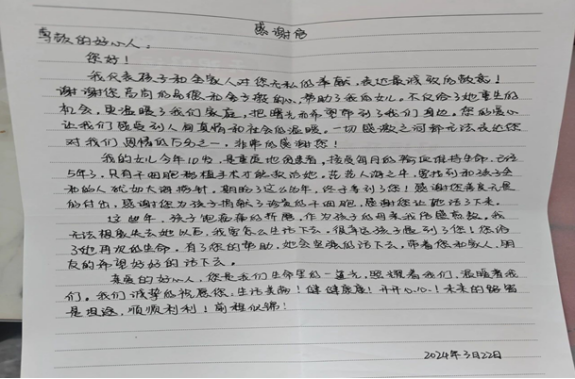 感谢信
尊敬的好心人:
您好!
我代表孩子和全家人对您无私的奉献,表达最诚敬的敬意!
谢谢您高尚的品德和金子般的心,帮助了我的女儿。不仅给了她重生的
机会,更温暖了我们家庭,把曙光和希望带到了我们身边。您的爱心
让我们感受到人间真情和社会的温暖。一切感激之词都无法表达您
对我们恩情的万分之一,非常的感谢您!
我的女儿今年10岁,是重度地贫患者,接受每月的输血维持生命,已经
5年了,只有干细胞移植手术才能救治她。茫茫人海之中,寻找到和孩子全
相的人犹如大海捞针,期盼了这么些年,终于等到了您!感谢您善良无畏
的付出,感谢您为孩子捐献了珍贵的干细胞,感谢您让她活了下来。
这些年,孩子饱受病痛的折磨,作为孩子的母亲我倍感煎熬。我
无法想象失去她以后,我要怎么生活下去。很幸运孩子遇到了您!您给
了她再次的生命。有了您的帮助,她会坚强的活下去,带着您和家人、朋
友的希望好好的活下去。
亲爱的好心人,您是我们生命里的一道光,照耀着我们,温暖着我
们。我们诚挚的祝愿您:生活美满!健健康康!开开心心!未来的路皆
是坦途,顺顺利利!前程似锦!
2024年3月22日